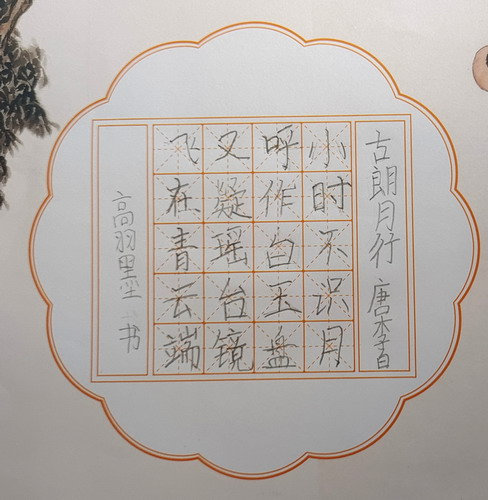 古朗月行 唐李白
小时不识月
呼作白玉盘
又疑瑶台镜
飞在青云端
高羽墨 书